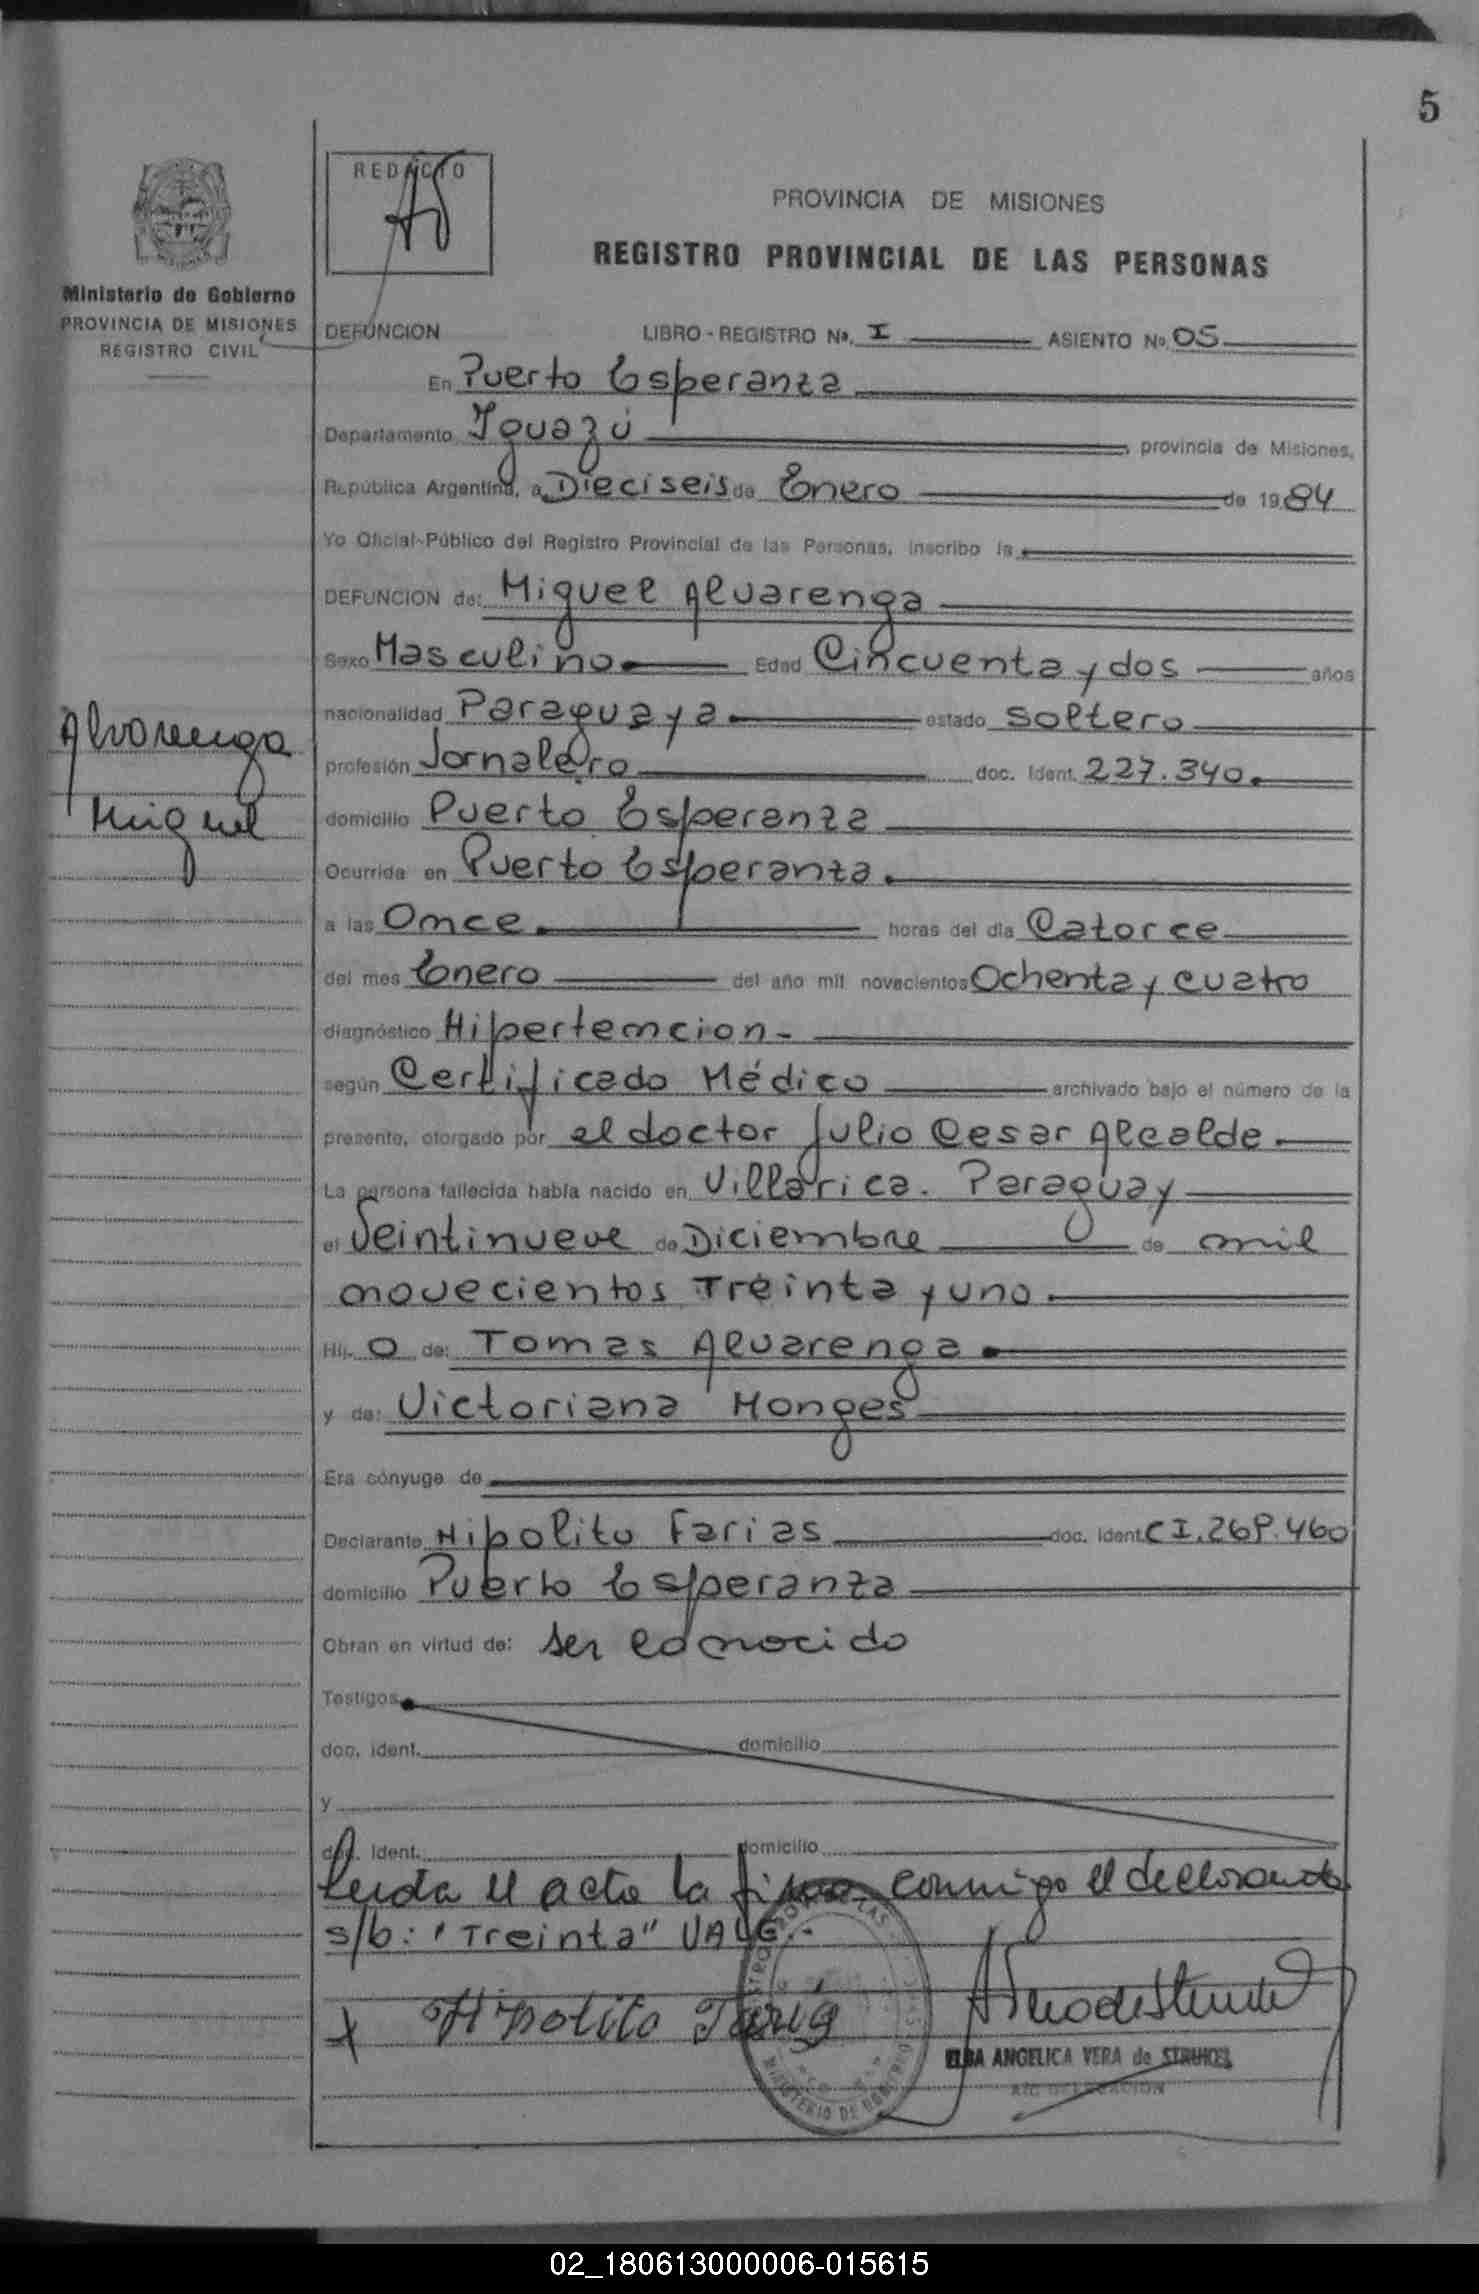 5
REDACTO
PROVINCIA DE MISIONES
REGISTRO PROVINCIAL DE LAS PERSONAS
Ministerio de Gobierno
PROVINCIA DE MISIONES
REGISTRO CIVIL
DEFUNCION LIBRO - REGISTRO Nº. I ASIENTO Nº 05
En Puerto Esperanza
Departamento Iguazú provincia de Misiones,
República Argentina, a Dieciseis de Enero de 1984
Yo Oficial Público del Registro Provincial de las Personas, inscribo la
DEFUNCION de: Miguel Alvarenga
Sexo Masculino Edad Cincuenta y dos años
nacionalidad Paraguaya estado soltero
Alvarenga
Miguel
profesión Jornalero doc. ident. 227.340.
domicilio Puerto Esperanza
Ocurrida en Puerto Esperanza.
a las Once. horas del día Catorce
del mes Enero del año mil novecientos Ochenta y cuatro
diagnóstico Hipertemcion-
según Certificado Médico archivado bajo el número de la
presente, otorgado por el doctor Julio Cesar Alcalde.
La persona fallecida había nacido en Villarica. Paraguay
el Veintinueve de Diciembre de mil
novecientos Treinta y uno.
Hij o de: Tomas Alvarenga.
y de: Victoriana Monges
Era cónyuge de
Declarante Hipolito Farias doc. ident. CI.269.460
domicilio Puerto Esperanza
Obran en virtud de: ser conocido
Testigos
doc. ident. domicilio
y
doc. ident. domicilio
Leida el acta la firma conmigo el declarante
s/b: "Treinta" VALE.-
x Hipolito Farias
MINISTERIO DE GOBIERNO
ELBA ANGELICA VERA de STRUHCEL
A/C DELEGACION
02_180613000006-015615